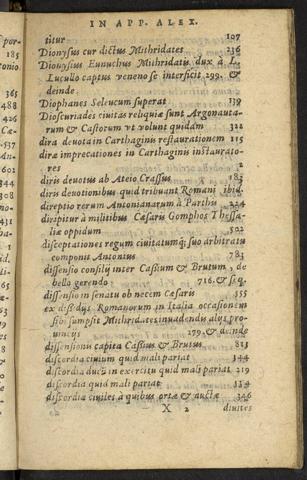 IN APP. ALEX.
por-
titur 107
185 Dionysius cur dictus Mithridates 236
tonio. Dionysius Eunuchus Mithridatis dux à L.
Lucullo captus veneno se interficit 299. &
365 deinde
488 Diophanes Seleucum superat 139
426 Dioscuriades civitas reliquiæ sunt Argonauta-
Cæ- rum & Castorum vt volunt quidam 322
dira deuota in Carthaginis restaurationem 115
diræ imprecationes in Carthaginis instaurato-
res 2
diris deuotus ab Ateio Crassus 183
diris deuotionibus quid tribuant Romani ibid.
direptio rerum Antonianarum à Parthis 224
diripitur à militibus Cæsaris Gomphos Thessa-
liæ oppidum 502
disceptationes regum ciuitatumq; suo arbitratu
componit Antonius 783
dissensio consilij inter Cassium & Brutum, de
bello gerendo 716. & seq.
dissensio in senatu ob necem Cæsaris 555
ex dissidijs Romanorum in Italia occasionem
sibi sumpsit Mithridates inuadendi alias pro-
uincias 279. & deinde
dissensionis capita Cassius & Brutus 813
discordia ciuium quid mali pariat 344
discordia ducũ in exercitu quid mali pariat 219
discordia quid mali pariat 334
discordiæ ciuiles à quibus ortæ & auctæ 346
X 2 diuites